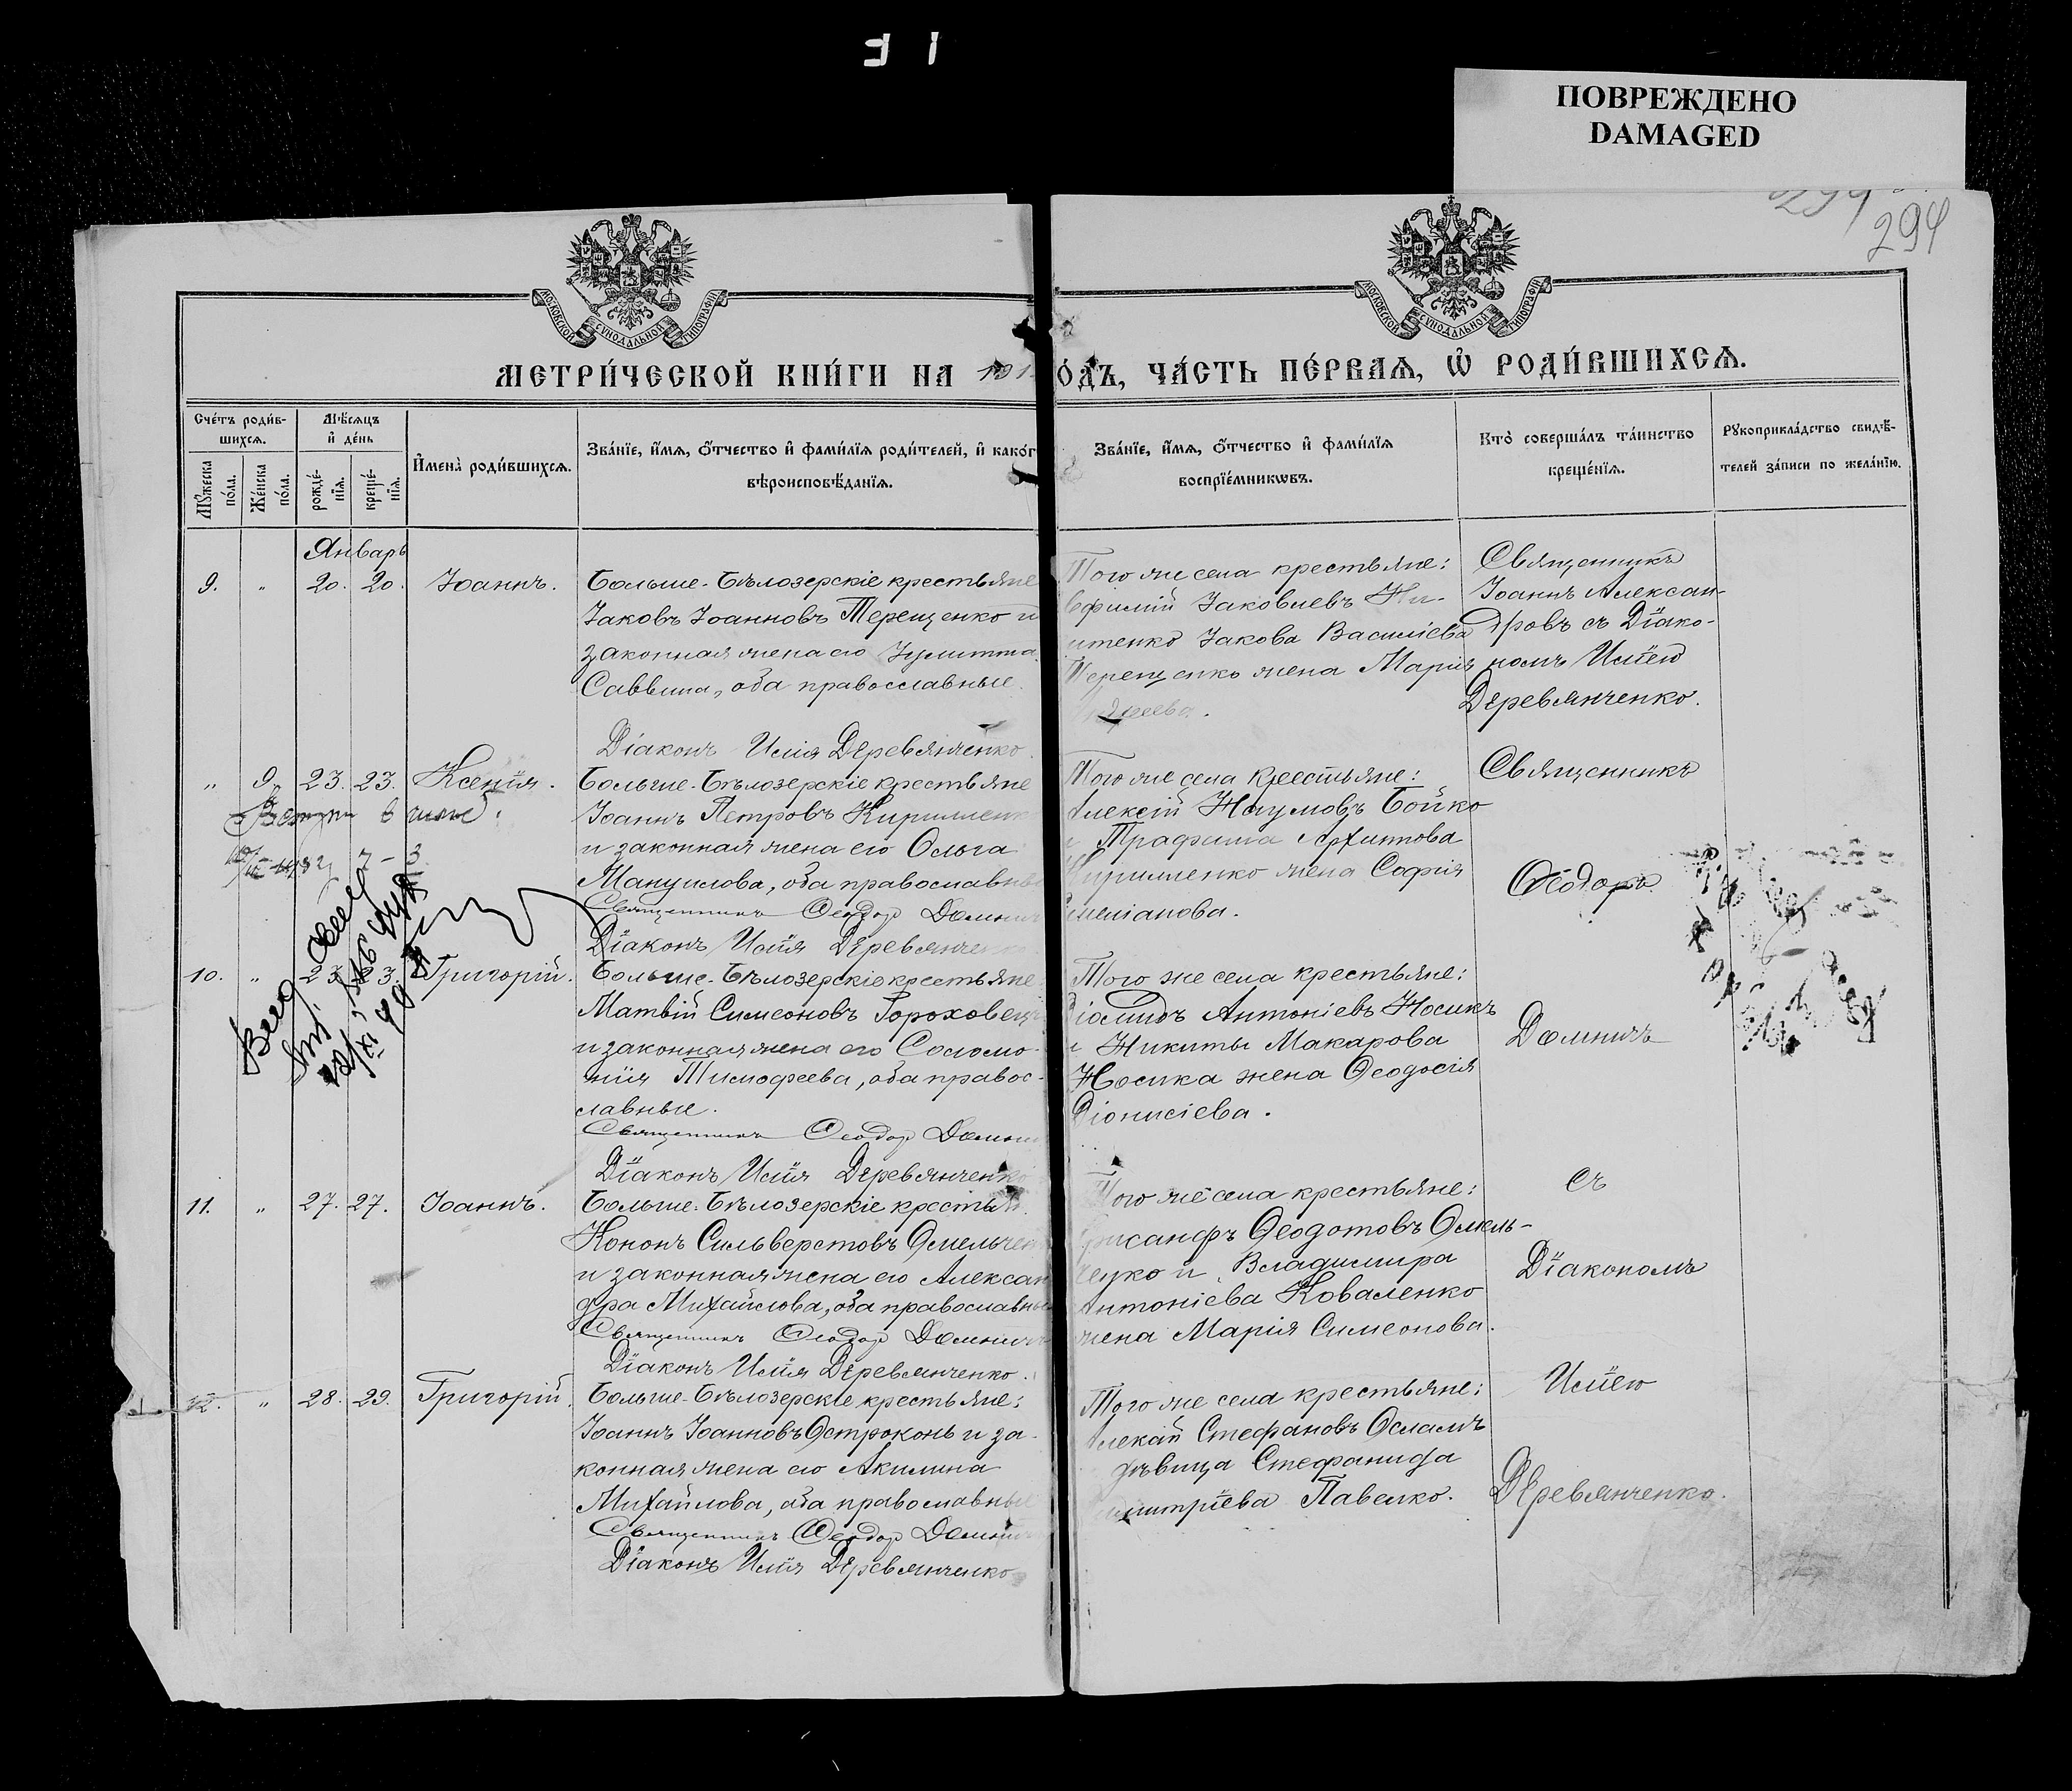 ПОВРЕЖДЕНО
DAMAGED
294
МОСКОВСКОЙ СУНОДАЛЬНОЙ ТИПОГРАФІИ
МОСКОВСКОЙ СУНОДАЛЬНОЙ ТИПОГРАФІИ
МЕТРИ́ЧЕСКОЙ КНИ́ГИ НА 191 ОДЪ, ЧА́СТЬ ПЕ́РВАѦ, Ѡ҆ РОДИ́ВШИХСѦ.
Сче́тъ роди́в-
шихсѧ.
Мѣ́сѧцъ
и҆ де́нь
Мꙋ́жеска по́ла.
Же́нска по́ла.
рожде́-
нїѧ.
креще́-
нїѧ.
И҆мена̀ роди́вшихсѧ.
Зва́нїе, и҆́мѧ, ѻ҆́тчество и҆ фами́лїѧ роди́телей, и҆ како́г
вѣроисповѣ́данїѧ.
Зва́нїе, и҆́мѧ, ѻ҆́тчество и҆ фами́лїѧ
воспрїе́мникѡвъ.
Кто̀ соверша́лъ та́инство
креще́нїѧ.
Рꙋкоприкла́дство свидѣ́-
телей за́писи по жела́нїю.
Январь
9. " 20. 20. Іоаннъ.
Больше-Бѣлозерскіе крестьяне
Іаковъ Іоанновъ Терещенко и
законная жена его Іулитта
Саввина, оба православные.
Діаконъ Илія Деревянченко
Того же села крестьяне:
Іаковлевъ
Іакова Василіева
Терещенко жена Марія
Священникъ
Іоаннъ Алексан-
дровъ съ Діако-
номъ Иліею
Деревянченко.
" 9. 23. 23. Ксенія.
Больше-Бѣлозерскіе крестьяне
Іоаннъ Петровъ Кириленк
и законная жена его Ольга
Мануилова, оба православны
Священникъ Ѳеодор Домнич
Діаконъ Илія Деревянченко
Того же села крестьяне:
Алексій Наумовъ Бойко
и Трафима Архипова
Кириленко жена Софія
Емеліанова.
Священникъ
Ѳеодоръ
10. " 23. 23. Григорій.
Больше-Бѣлозерскіе крестьяне
Матвій Симеоновъ Гороховец
и законная жена его Соломо-
нія Тимофеева, оба правос-
лавные.
Священникъ Ѳеодор Домни
Діаконъ Илія Деревянченко
Того же села крестьяне:
Антоніевъ Носикъ
и Никиты Макарова
Носика жена Ѳеодосія
Діонисіева.
Домничъ
11. " 27. 27. Іоаннъ.
Больше-Бѣлозерскіе крестьян
Кононъ Сильверстовъ Омельчен
и законная жена его Алексан
дра Михайлова, оба православные
Священникъ Ѳеодор Домнич
Діаконъ Илія Деревянченко.
Того же села крестьяне:
Хрисанфъ Ѳеодотовъ Омель-
ченко и Владимира
Антоніева Коваленко
жена Марія Симеонова.
съ
Діакономъ
12. " 28. 29. Григорій.
Больше-Бѣлозерскіе крестьяне:
Іоаннъ Іоанновъ Остроконь и за-
конная жена его Акилина
Михайлова, оба православные
Священникъ Ѳеодор Домнич
Діаконъ Илія Деревянченко
Того же села крестьяне:
Стефановъ Осламъ
дѣвица Стефанида
Димитріева Павелко.
Иліею
Деревянченко.